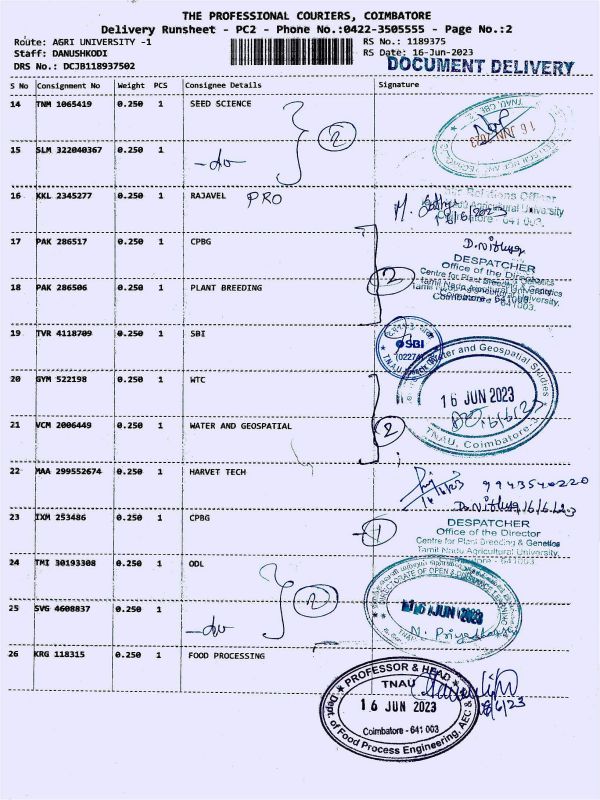 THE PROFESSIONAL COURIERS, COIMBATORE
Delivery Runsheet - PC2 - Phone No.:0422-3505555 - Page No.:2
Route: AGRI UNIVERSITY -1
RS No.: 1189375
Staff: DANUSHKODI
RS Date: 16-Jun-2023
DRS No.: DCJB118937502
DOCUMENT DELIVERY
S No Consignment No Weight PCS Consignee Details Signature
14 TNM 1065419 0.250 1 SEED SCIENCE
2
16 JUN 2023
15 SLM 322040367 0.250 1 -do-
16 KKL 2345277 0.250 1 RAJAVEL PRO
17 PAK 286517 0.250 1 CPBG
DESPATCHER
Office of the Director
Centre for Plant Breeding & Genetics
Tamil Nadu Agricultural University,
2
18 PAK 286506 0.250 1 PLANT BREEDING
Coimbatore - 641003.
19 TVR 4118709 0.250 1 SBI
SBI
20 GYM 522198 0.250 1 WTC
Water and Geospatial Studies
16 JUN 2023
TNAU, Coimbatore-3
21 VCM 2006449 0.250 1 WATER AND GEOSPATIAL
2
22 MAA 299552674 0.250 1 HARVET TECH
9943540220
16/6/23
23 IXM 253486 0.250 1 CPBG
1
DESPATCHER
Office of the Director
Centre for Plant Breeding & Genetics
Tamil Nadu Agricultural University,
24 TMI 30193308 0.250 1 ODL
2
DIRECTORATE OF OPEN & DISTANCE LEARNING
16 JUN 2023
25 SVG 4608837 0.250 1 -do-
26 KRG 118315 0.250 1 FOOD PROCESSING
PROFESSOR & HEAD
TNAU
16 JUN 2023
Coimbatore - 641 003
Dept. of Food Process Engineering, AEC &